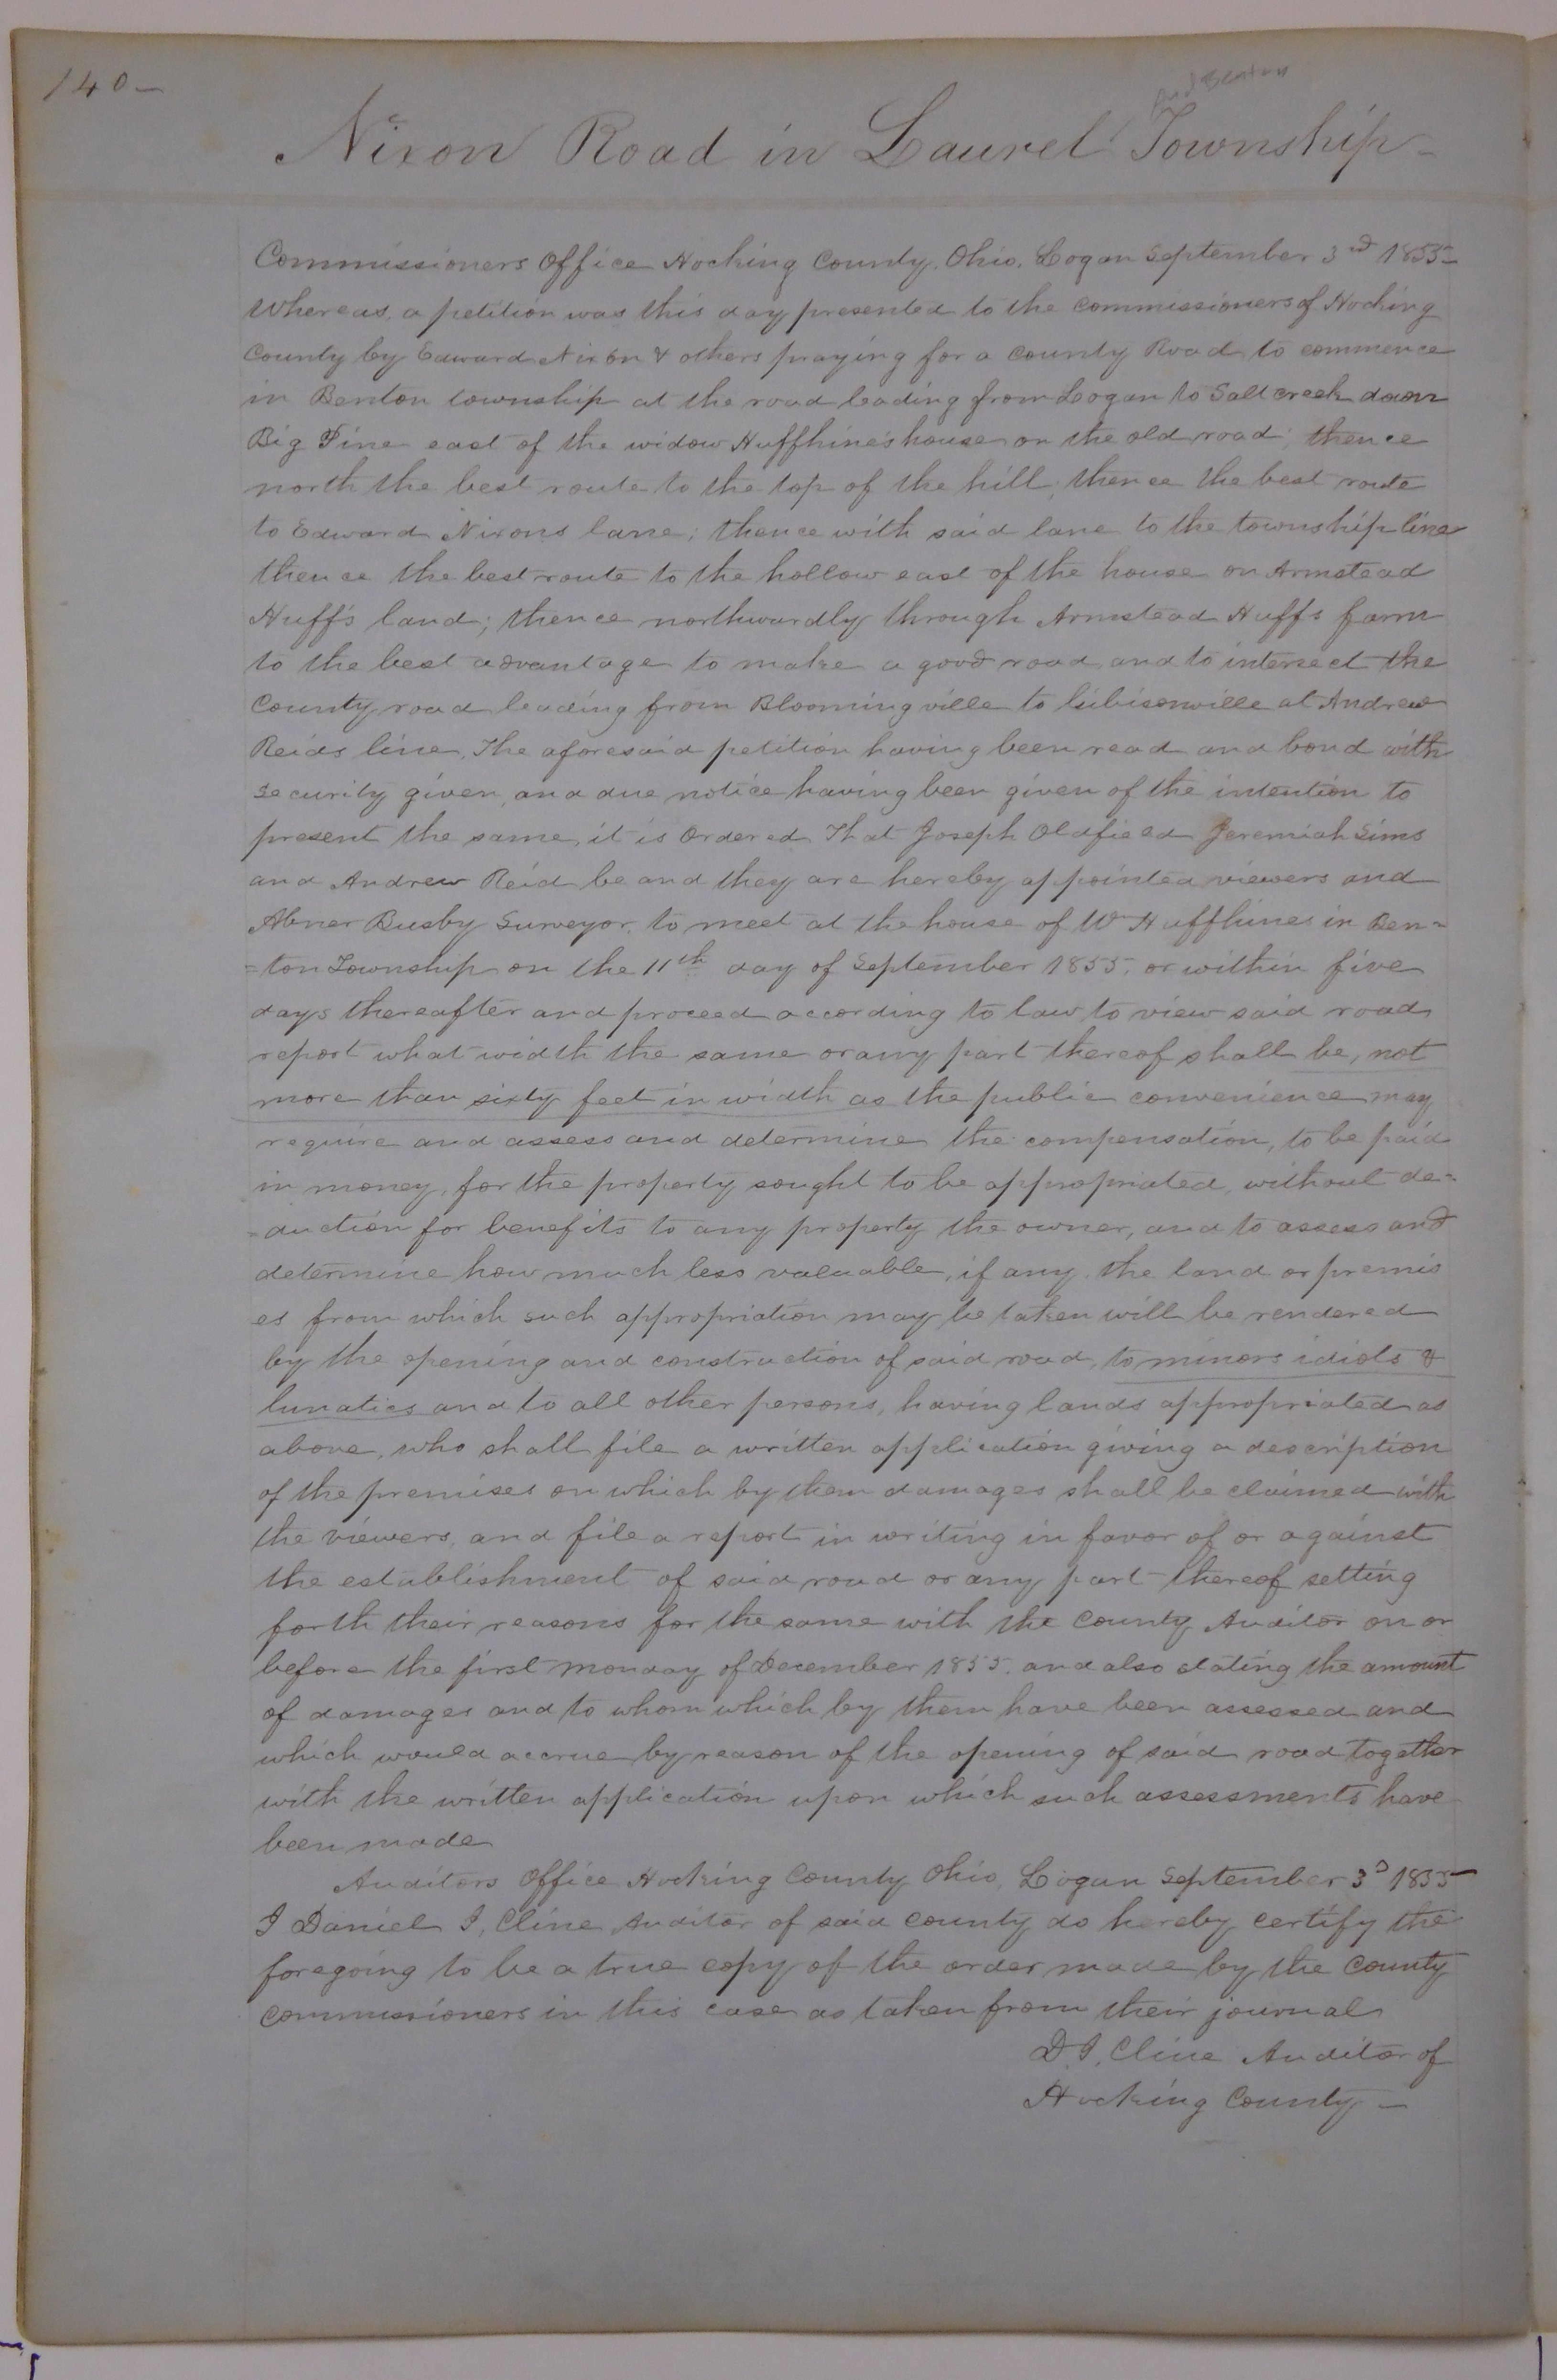 140-
And Benton
Nixon Road in Laurel Township-
Commissioners Office Hocking County, Ohio, Logan September 3rd 1855-
Whereas, a petition was this day presented to the commissioners of Hocking
County by Edward Nixon & others praying for a county Road to commence
in Benton township at the road leading from Logan to Salt creek down
Big Pine east of the widow Huffhine's house on the old road; thence
north the best route to the top of the hill; thence the best route
to Edward Nixons lane; thence with said lane to the township line
thence the best route to the hollow east of the house on Armstead
Huff's land; thence northwardly through Armstead Huffs farm
to the best advantage to make a good road, and to intersect the
County road leading from Bloomingville to Gibisonville at Andrew
Reids line. The aforesaid petition having been read and bond with
security given, and due notice having been given of the intention to
present the same, it is Ordered That Joseph Oldfield Jeremiah Sims
and Andrew Reid be and they are hereby appointed viewers and
Abner Busby Surveyor, to meet at the house of Wm Huffhines in Ben=
=ton Township on the 11th day of September 1855, or within five
days thereafter and proceed according to law, to view said road,
report what width the same or any part thereof shall be, not
more than sixty feet in width as the public convenience may
require and assess and determine the compensation, to be paid
in money, for the property sought to be appropriated, without de=
=duction for benefits to any property the owner, and to assess and
determine how much less valuable, if any, the land or premis
es from which such appropriation may be taken will be rendered
by the opening and construction of said road, to minors idiots &
lunatics and to all other persons, having lands appropriated as
above, who shall file a written application giving a description
of the premises on which by them damages shall be claimed with
the viewers, and file a report in writing in favor of or against
the establishment of said road or any part thereof setting
forth their reasons for the same with the County Auditor on or
before the first monday of December 1855, and also stating the amount
of damages and to whom which by them have been assessed and
which would accrue by reason of the opening of said road together
with the written application upon which such assessments have
been made
Auditors Office Hocking County Ohio, Logan September 3d 1855-
I Daniel I, Cline Auditor of said county do hereby certify the
foregoing to be a true copy of the order made by the County
commissioners in this case as taken from their journal
D. I. Cline Auditor of
Hocking County -